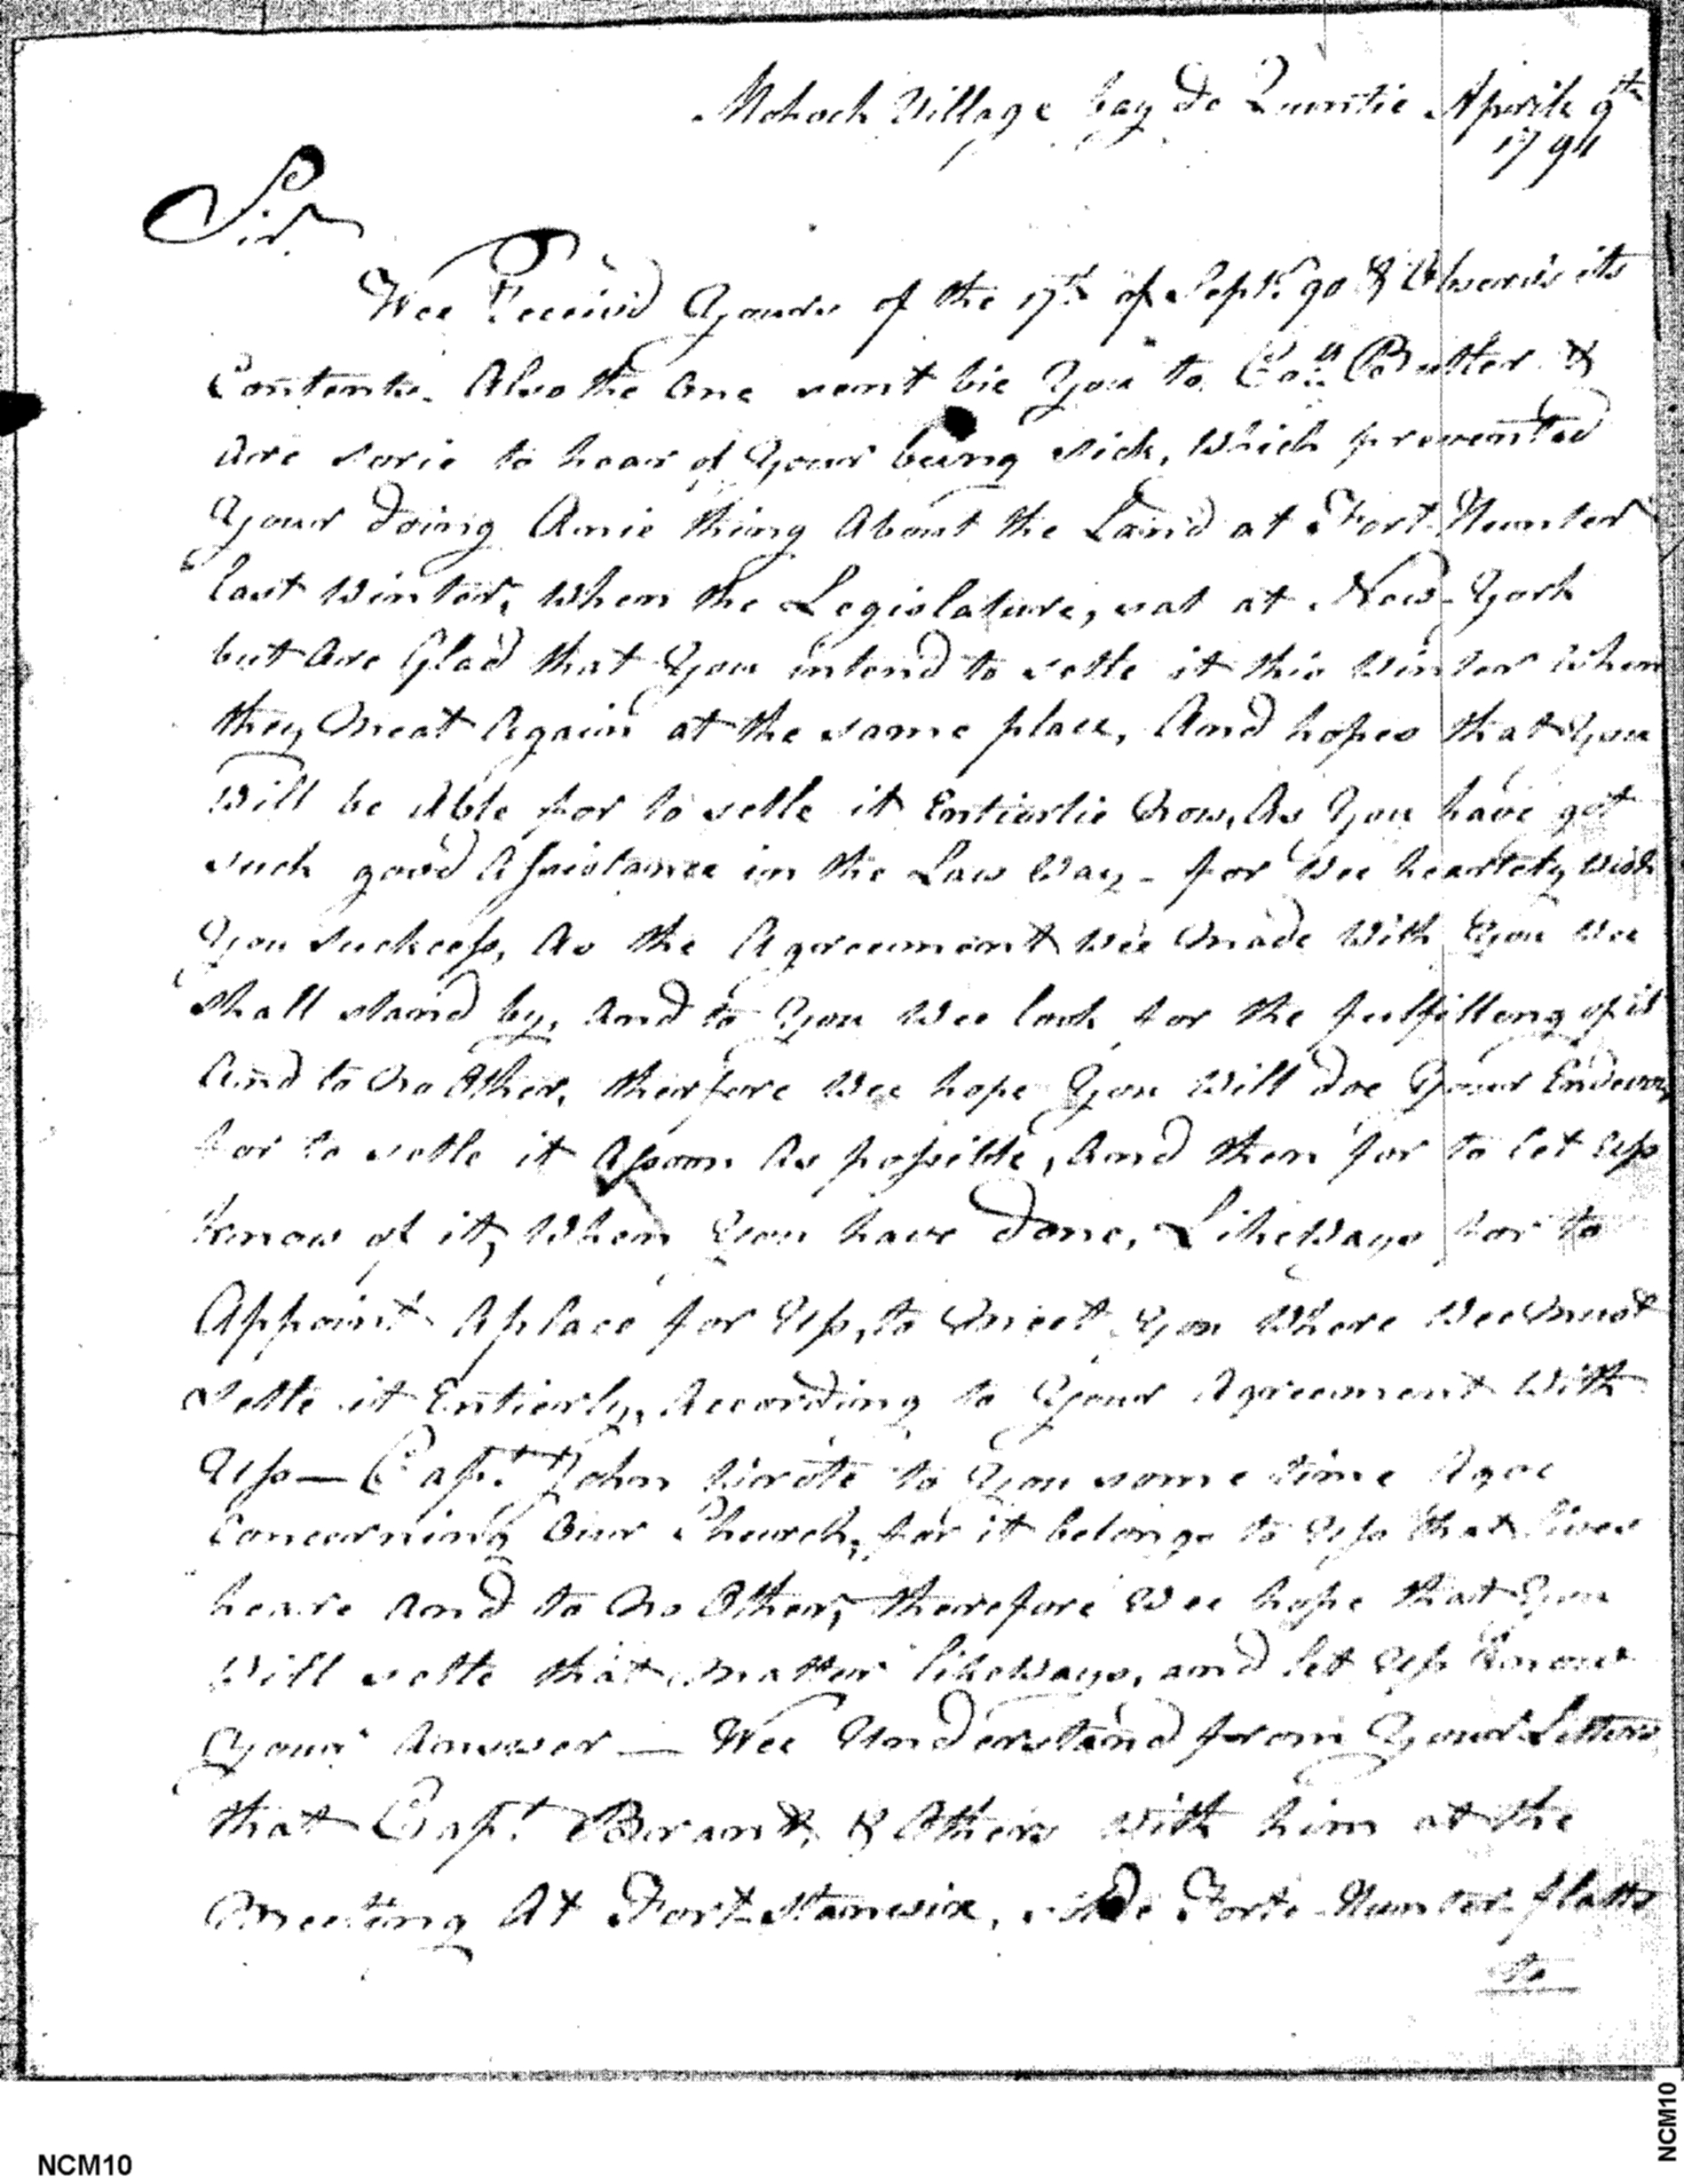 Mohock Village bay De Quintie Aprile 9th
1794
Sir
Wee Receivd Yourdr of the 17th of Sept. 90 & Observ's its
Contents. Also the One sent bie You to Coll. Butler &
Are sorie to hear of Your being sick, Which prevented
Your doing Anie thing About the Land at Fort Hunter
last Winter, When the Legislature, sat at New-York
but Are Glad that You intend to setle it this Winter When
they Meat Again at the same place, And hopes that You
Will be Able for to setle it Entierlie Now, As You have got
such good Assistance in the Law Way - for Wee heartely Wish
You suckcess, As the Agreement Wee Made With You Wee
shall stand by, And to You Wee look for the fulfilleng of it
And to No Other, therfore Wee hope You Will doe Your Endevour
for to setle it Asoon As possible, And then for to let Uss
know of it, When You have Done, LikeWays for to
Appoint Aplace for Uss, to Meet You Where Wee Must
setle it Entierly, According to Your Agreement With
Uss — Capt. John Wrote to You some time Agoe
Concerning Our Church, for it belongs to Uss that lives
heare And to No Other, therefore Wee hope that You
Will setle that Matter likeWays, and let Uss know
Your Answer — Wee Understand from Your Letters
that Capt. Brant, & Others With him at the
Meeting At Fort Stanwix, Forte Hunter flatts
to
NCM10
NCM10